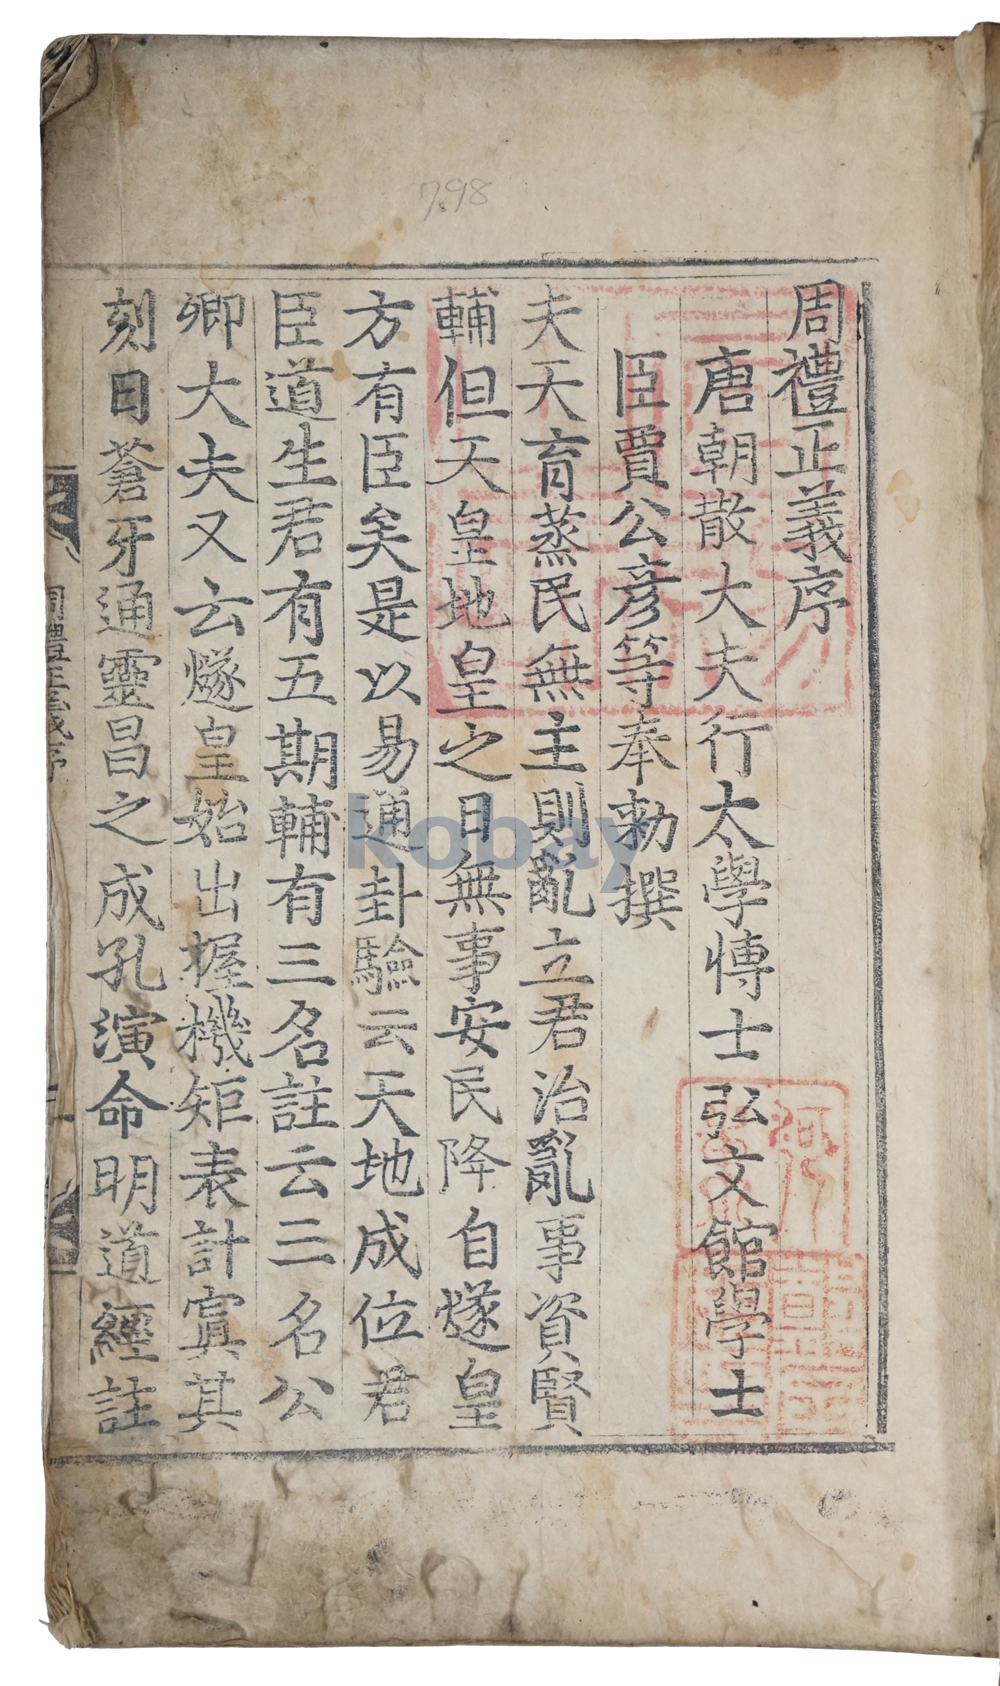 798
周禮正義序
唐朝散大夫行太學博士弘文館學士
臣賈公彥等奉勅撰
夫天育蒸民無主則亂立君治亂事資賢
輔但天皇地皇之日無事安民降自燧皇
方有臣矣是以易通卦驗云天地成位君
臣道生君有五期輔有三名註云三名公
卿大夫又云燧皇始出握機矩表計寘其
刻曰蒼牙通靈昌之成孔演命明道經註
周禮正義序
kobay